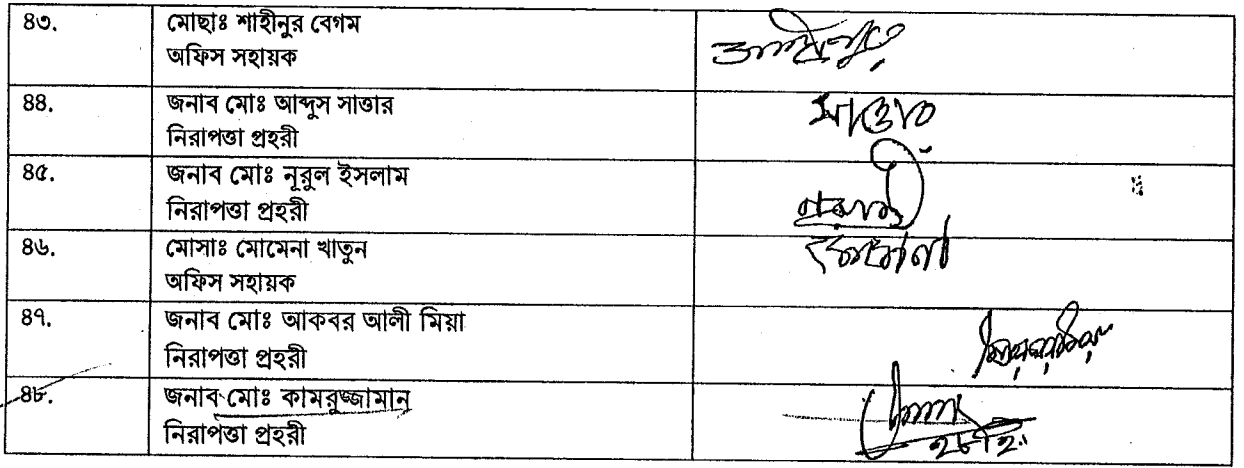 ৪৩.
মোছাঃ শাহীনুর বেগম
অফিস সহায়ক
৪৪.
জনাব মোঃ আব্দুস সাত্তার
নিরাপত্তা প্রহরী
সাত্তার
৪৫.
জনাব মোঃ নূরুল ইসলাম
নিরাপত্তা প্রহরী
৪৬.
মোসাঃ মোমেনা খাতুন
অফিস সহায়ক
মোমেনা
৪৭.
জনাব মোঃ আকবর আলী মিয়া
নিরাপত্তা প্রহরী
৪৮.
জনাব মোঃ কামরুজ্জামান
নিরাপত্তা প্রহরী